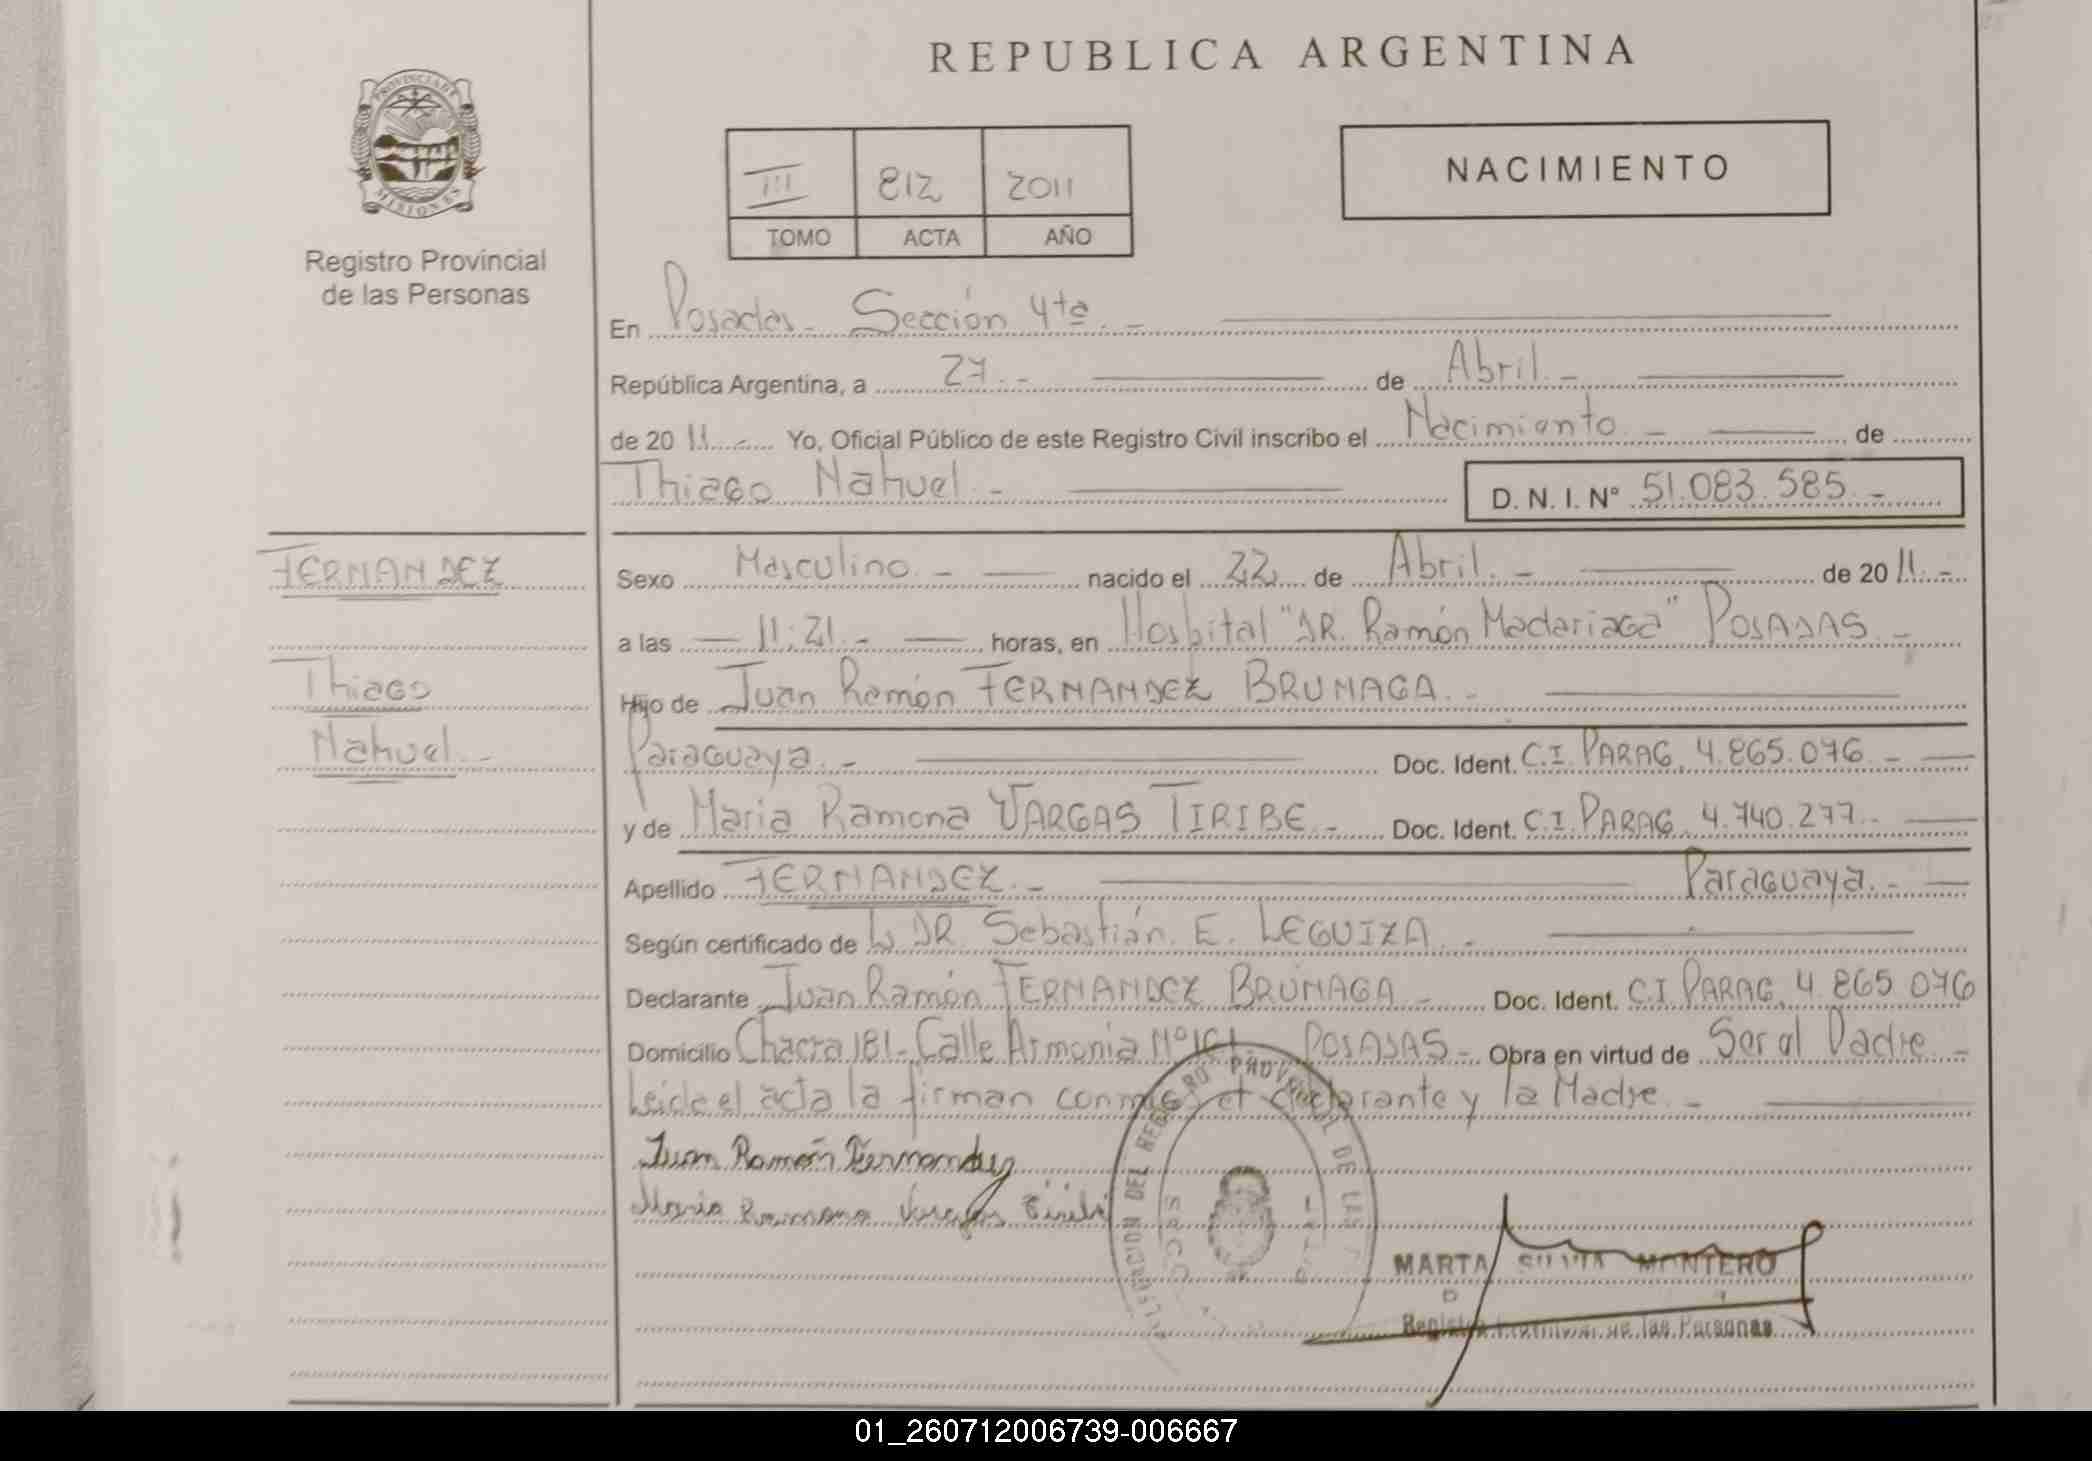 REPUBLICA ARGENTINA
PROVINCIA DE
MISIONES
Registro Provincial
de las Personas
III 812 2011
TOMO ACTA AÑO
NACIMIENTO
En Posadas - Sección 4ta. -
República Argentina, a 27. - de Abril. -
de 20 11. - Yo, Oficial Público de este Registro Civil inscribo el Nacimiento. - de
Thiago Nahuel. - D. N. I. Nº 51.083.585. -
FERNANDEZ
Thiago
Nahuel. -
Sexo Masculino. - nacido el 22 de Abril. - de 20 11. -
a las 11:21. - horas, en Hospital "DR. Ramón Madariaga" POSADAS. -
Hijo de Juan Ramón FERNANDEZ BRUNAGA. -
Paraguaya. - Doc. Ident. C.I. PARAG. 4.865.076. -
y de Maria Ramona VARGAS TIRIBE. - Doc. Ident. C.I. PARAG. 4.740.277. -
Apellido FERNANDEZ. - Paraguaya. -
Según certificado de DR. Sebastián E. LEGUIZA. -
Declarante Juan Ramón FERNANDEZ BRUNAGA - Doc. Ident. C.I. PARAG. 4.865.076
Domicilio Chacra 181 - Calle Armonia Nº POSADAS - Obra en virtud de Ser el Padre -
Leida el acta la firman conmigo el declarante y la Madre. -
Juan Ramón Fernandez
Maria Ramona Vargas Tiribe
DEL REGISTRO PROVINCIAL DE LAS
MARTA SILVIA MONTERO
Registro Provincial de las Personas
01_260712006739-006667